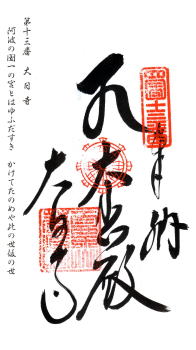 奉納
大日殿
大日寺
第十三番 大日寺
阿波の国一の宮とはゆふだすき かけてたのめや此の世後の世